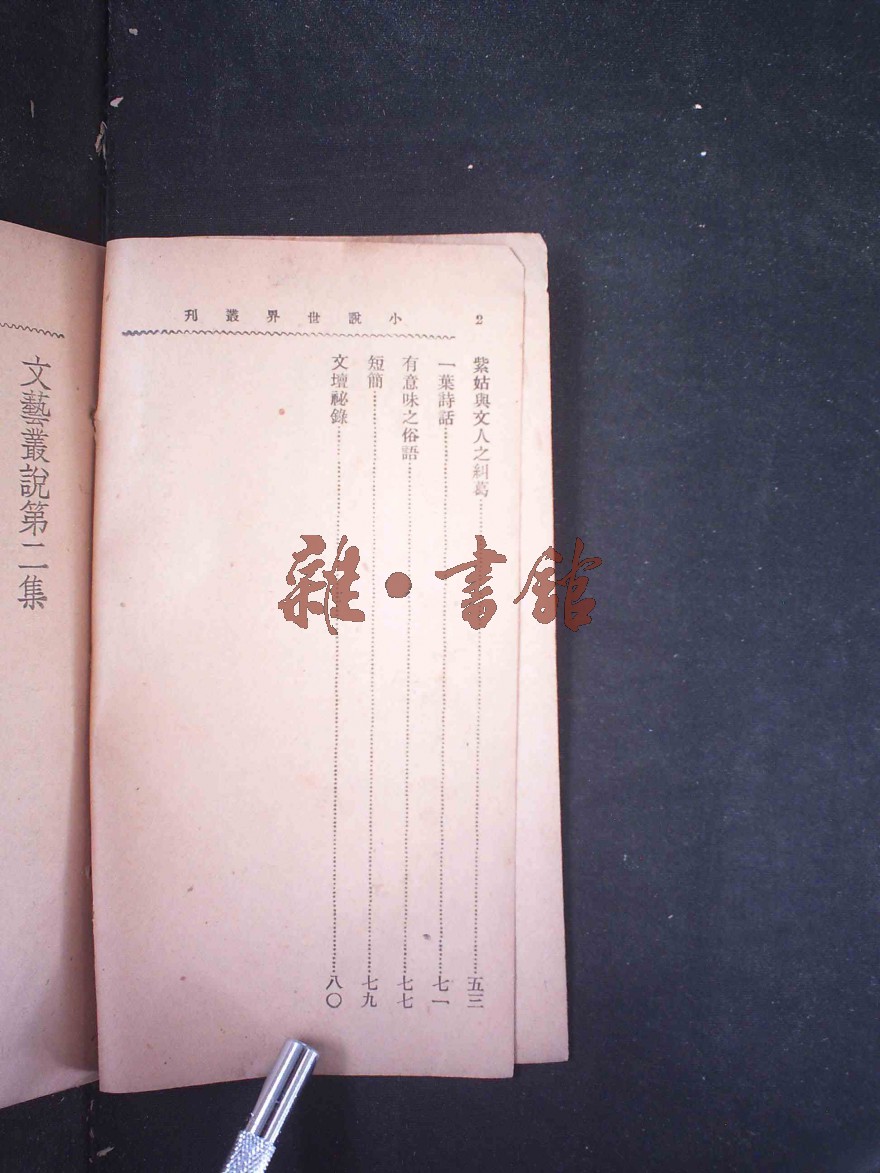 2
小說世界叢刊
紫姑與文人之糾葛……五三
一葉詩話……七一
有意味之俗語……七七
短簡……七九
文壇祕錄……八〇
文藝叢說第二集
雜·書館